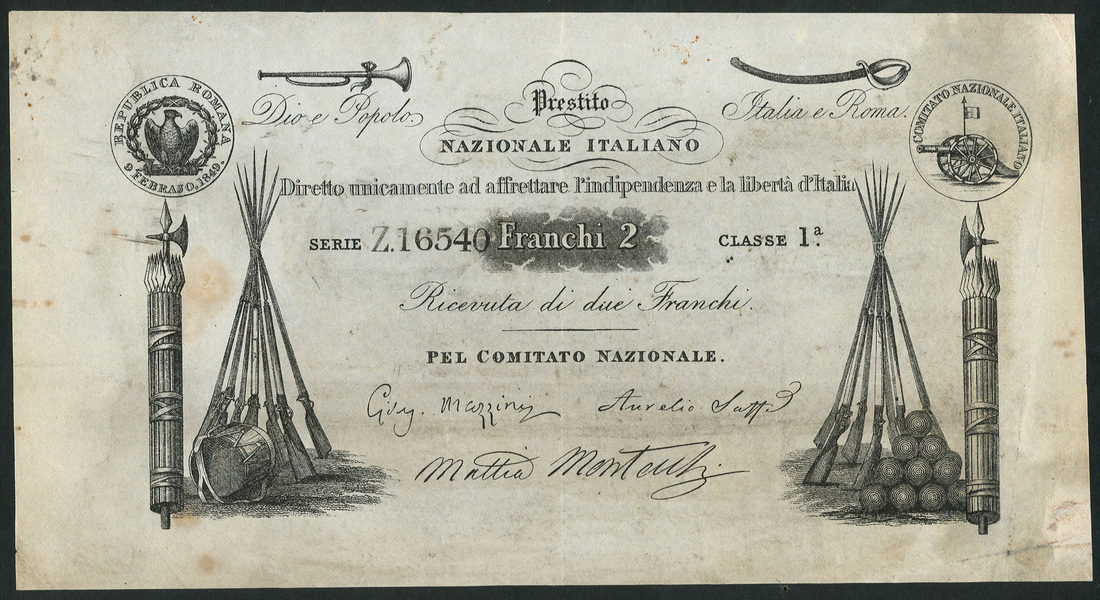 REPUBLICA ROMANA
9 FEBRAJO, 1849.
Dio e Popolo.
Prestito
NAZIONALE ITALIANO
Italia e Roma.
COMITATO NAZIONALE ITALIANO
Diretto unicamente ad affrettare l'indipendenza e la libertà d'Italia
SERIE Z.16540 Franchi 2 CLASSE 1ª.
Ricevuta di due Franchi.
PEL COMITATO NAZIONALE.
Mazzini Aurelio Saffi
Mattia Montecchi